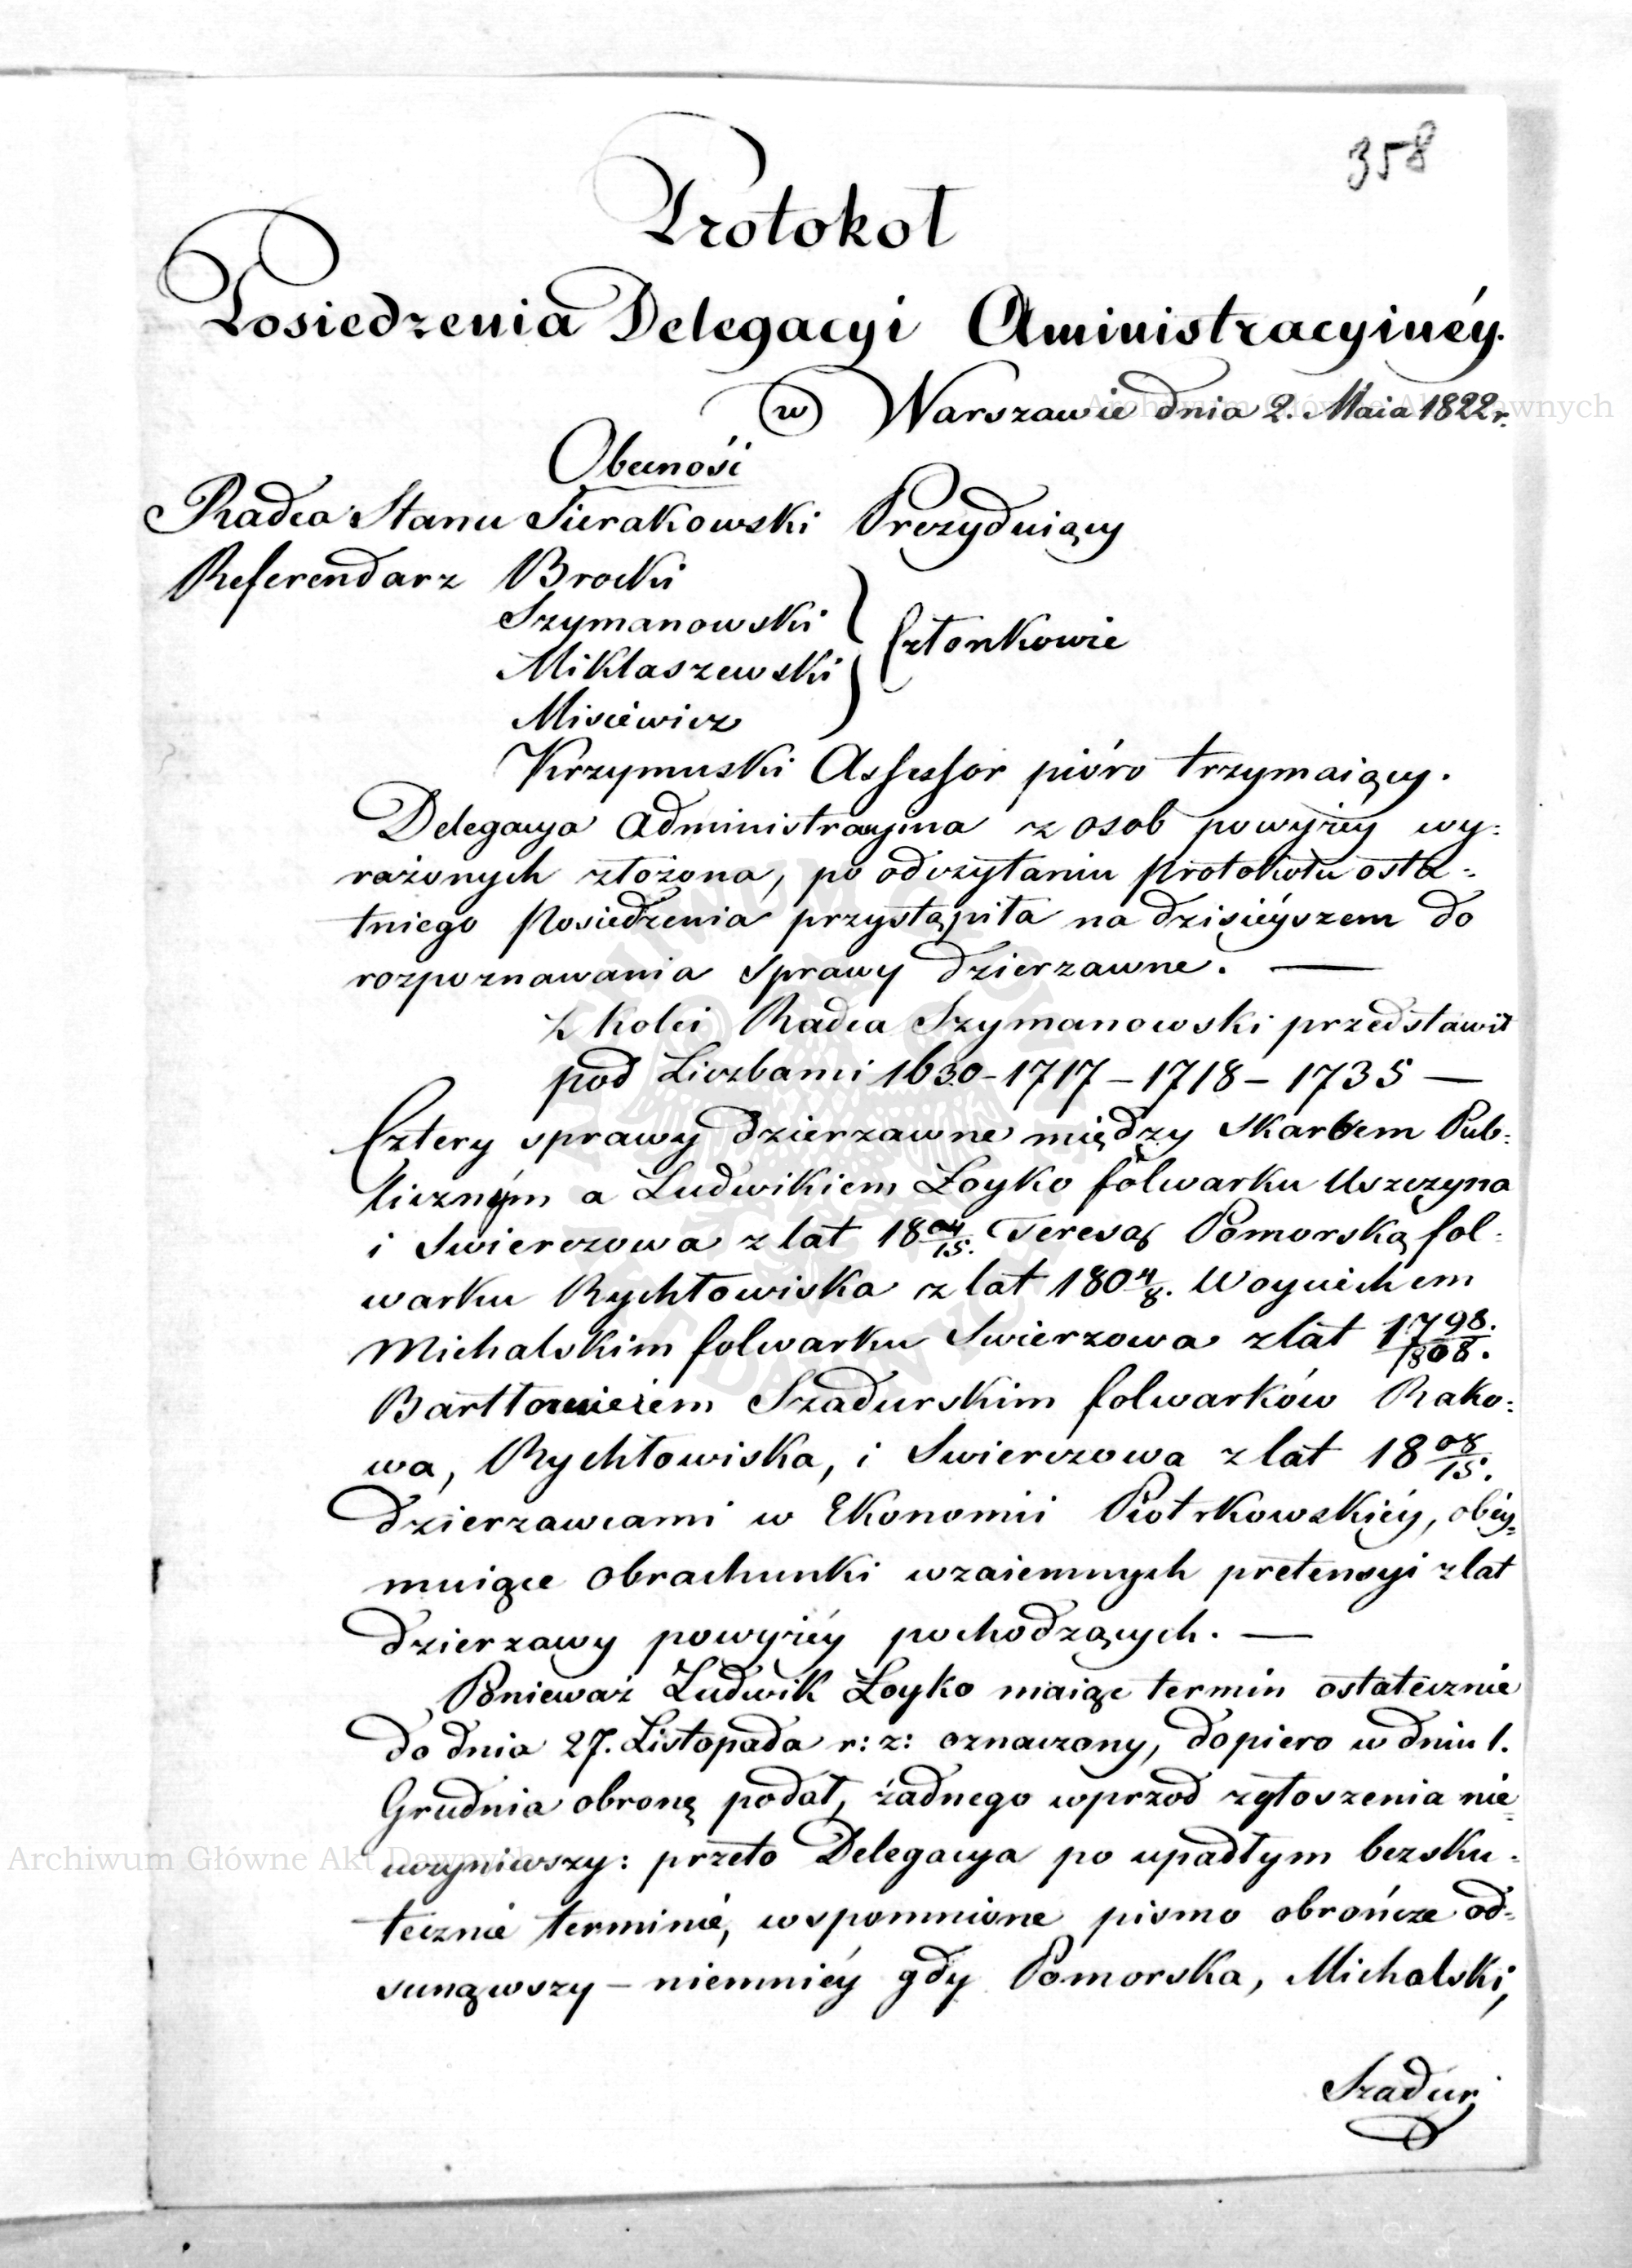 358
Protokoł
Posiedzenia Delegacyi Aministracyinéy.
w Warszawie dnia 2. Maia 1822 r.
Obecność
Radca Stanu Sierakowski Prezyduiący
Referendarz Brocki
Szymanowski
Członkowie
Miklaszewski
Misiewicz
Krzymuski Assessor pióro trzymaiący.
Delegacya administracyina z osob powyżey wy:
rażonych złożona, po odczytaniu Protokołu osta:
tniego Posiedzenia przystąpiła na dzisiéyszem do
rozpoznawania sprawy dzierzawne. —
Z kolei Radca Szymanowski przedstawił
pod Liczbami 1630 – 1717 – 1718 – 1735 —
Cztery sprawy dzierzawne między Skarbem Pub:
licznym a Ludwikiem Łoyko folwarku Uszczyna
i Swierczowa z lat 18 04/15. Teresą Pomorską fol:
warku Rychłowiska z lat 180 4/8. Woyciechem
Michalskim folwarku Swierzowa z lat 1798./1808.
Bartłomieiem Szadurskim folwarków Rako:
wa, Rychłowiska, i Swierczowa z lat 18 08/15.
dzierzawcami w Ekonomii Piotrkowskiéy, obéy:
muiące obrachunki wzaiemnych pretensyi z lat
dzierzawy powyżéy pochodzących. —
Ponieważ Ludwik Łoyko maiąc termin ostatecznie
do dnia 27. Listopada r: z: oznaczony, dopiero w dniu 1.
Grudnia obronę podał, żadnego wprzod zgłoszenia nie
uczyniwszy: przeto Delegacya po upadłym bezsku:
tecznie terminie, wspomnione pismo obrończe od:
sunąwszy – niemniéy gdy Pomorska, Michalski,
Szadur:
Archiwum Główne Akt Dawnych
Archiwum Główne Akt Dawnych